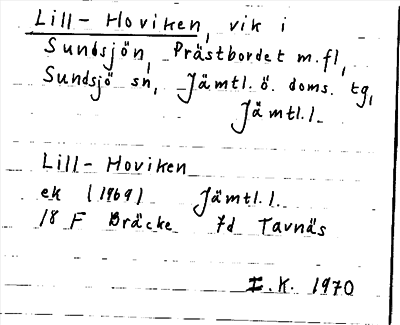 Lill-Hoviken, vik i
Sundsjön, Prästbordet m.fl,
Sundsjö sn, Jämtl. ö. doms. tg,
Jämtl. l.
Lill-Hoviken
ek (1969) Jämtl. l.
18 F Bräcke 7d Tavnäs
I.K. 1970